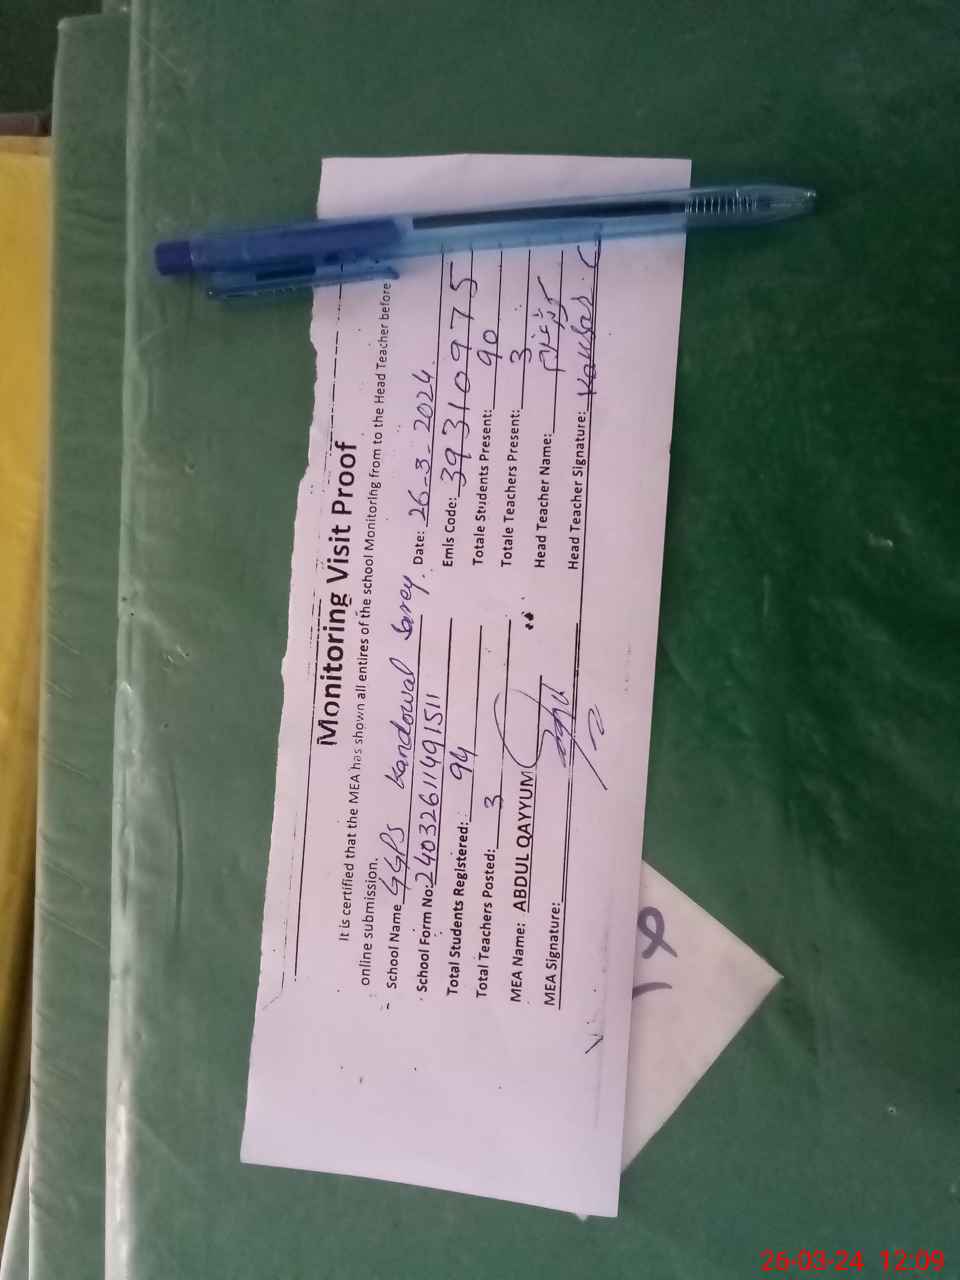 Monitoring Visit Proof
It is certified that the MEA has shown all entires of the school Monitoring from to the Head Teacher before
online submission.
School Name GGPS Kandowal Sarey. Date: 26-3-2024
School Form No: 2403261149 1511 Emis Code: 39310975
Total Students Registered: 94 Totale Students Present: 90
Total Teachers Posted: 3 Totale Teachers Present: 3
MEA Name: ABDUL QAYYUM Head Teacher Name:
MEA Signature: Head Teacher Signature: Kausar
26-03-24 12:09